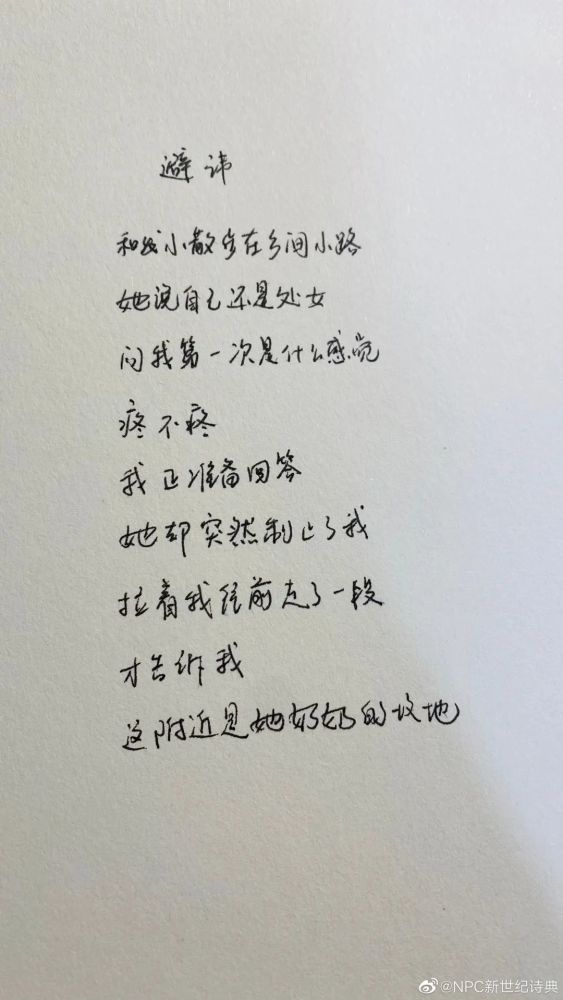 避讳
和线小散步在乡间小路
她说自己还是处女
问我第一次是什么感觉
疼不疼
我正准备回答
她却突然制止了我
拉着我往前走了一段
才告诉我
这附近是她奶奶的坟地
@NPC新世纪诗典